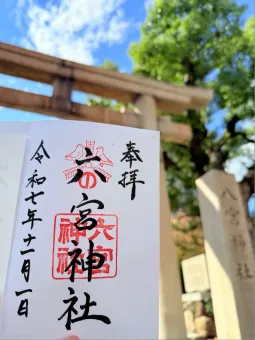 奉拝
六宮神社
六宮神社
令和七年十一月一日
八宮神社